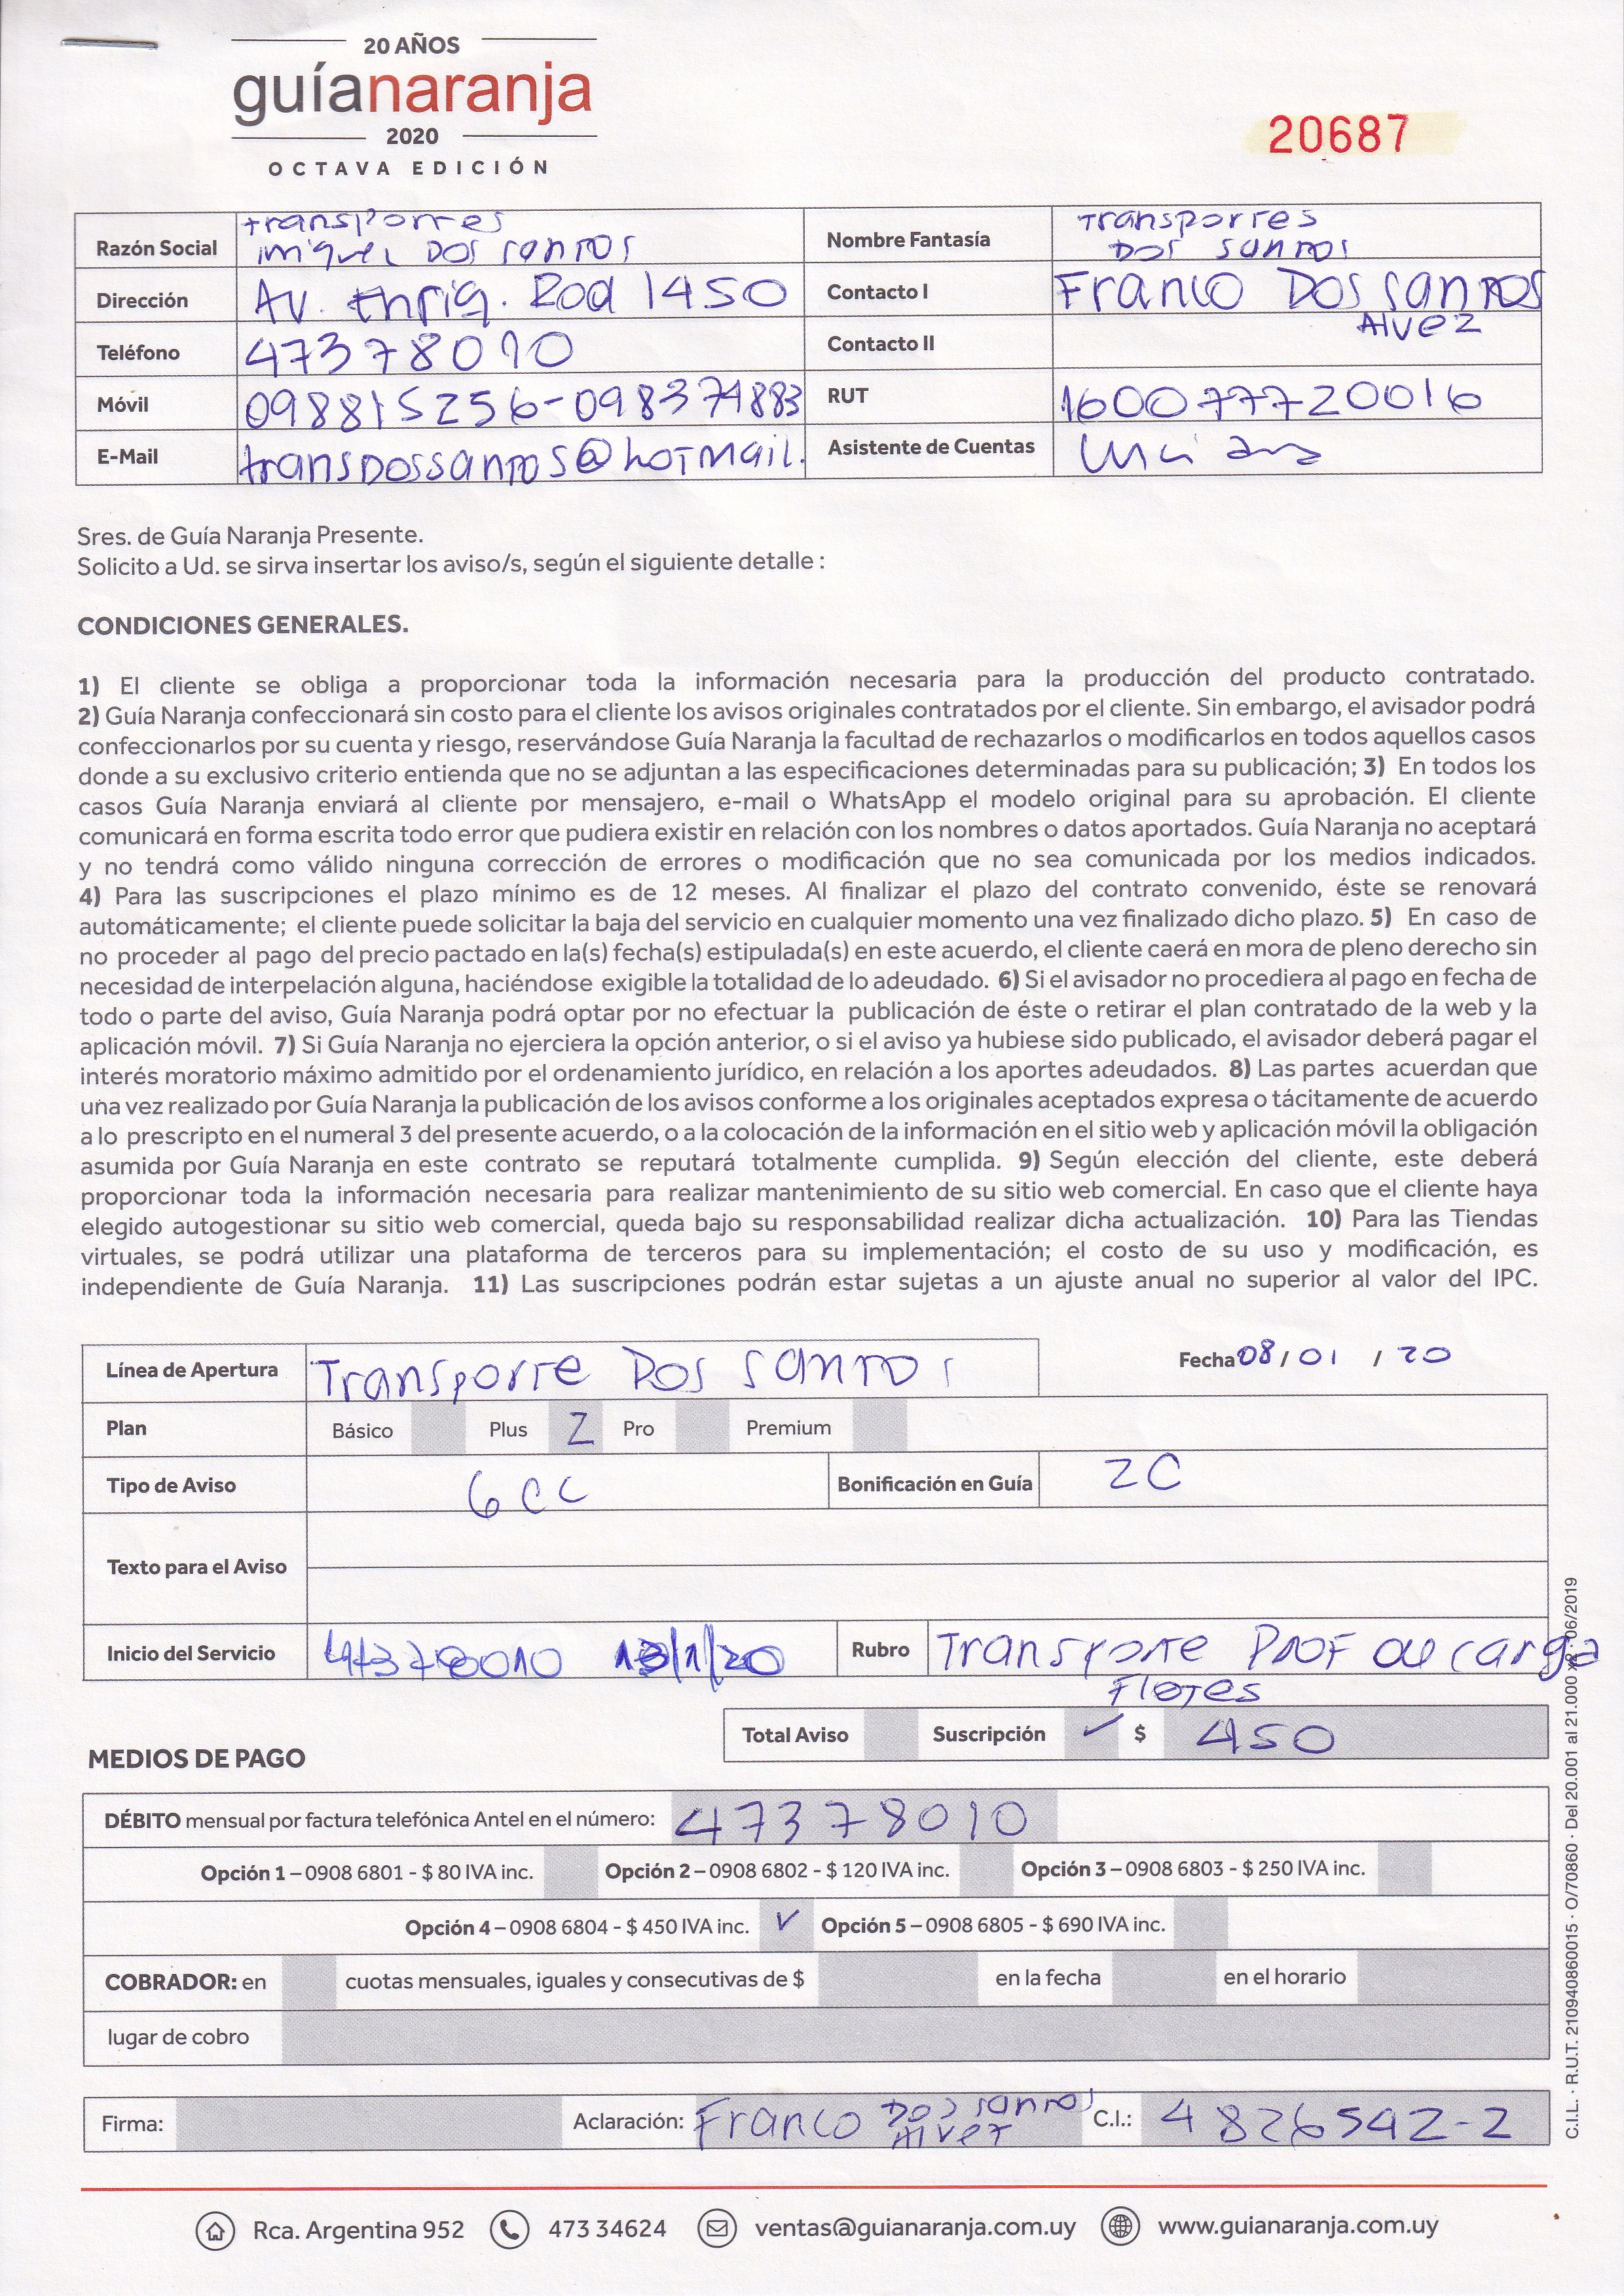 20 AÑOS
guíanaranja
2020
OCTAVA EDICIÓN
20687
Razón Social transportes miguel Dos santos Nombre Fantasía Transportes Dos santos
Dirección Av. Enriq. Rod 1450 Contacto I Franco Dos santos Alvez
Teléfono 47378010 Contacto II
Móvil 098815256-098374883 RUT 160077720016
E-Mail transDossantos@hotmail. Asistente de Cuentas
Sres. de Guía Naranja Presente.
Solicito a Ud. se sirva insertar los aviso/s, según el siguiente detalle :
CONDICIONES GENERALES.
1) El cliente se obliga a proporcionar toda la información necesaria para la producción del producto contratado.
2) Guía Naranja confeccionará sin costo para el cliente los avisos originales contratados por el cliente. Sin embargo, el avisador podrá
confeccionarlos por su cuenta y riesgo, reservándose Guía Naranja la facultad de rechazarlos o modificarlos en todos aquellos casos
donde a su exclusivo criterio entienda que no se adjuntan a las especificaciones determinadas para su publicación; 3) En todos los
casos Guía Naranja enviará al cliente por mensajero, e-mail o WhatsApp el modelo original para su aprobación. El cliente
comunicará en forma escrita todo error que pudiera existir en relación con los nombres o datos aportados. Guía Naranja no aceptará
y no tendrá como válido ninguna corrección de errores o modificación que no sea comunicada por los medios indicados.
4) Para las suscripciones el plazo mínimo es de 12 meses. Al finalizar el plazo del contrato convenido, éste se renovará
automáticamente; el cliente puede solicitar la baja del servicio en cualquier momento una vez finalizado dicho plazo. 5) En caso de
no proceder al pago del precio pactado en la(s) fecha(s) estipulada(s) en este acuerdo, el cliente caerá en mora de pleno derecho sin
necesidad de interpelación alguna, haciéndose exigible la totalidad de lo adeudado. 6) Si el avisador no procediera al pago en fecha de
todo o parte del aviso, Guía Naranja podrá optar por no efectuar la publicación de éste o retirar el plan contratado de la web y la
aplicación móvil. 7) Si Guía Naranja no ejerciera la opción anterior, o si el aviso ya hubiese sido publicado, el avisador deberá pagar el
interés moratorio máximo admitido por el ordenamiento jurídico, en relación a los aportes adeudados. 8) Las partes acuerdan que
una vez realizado por Guía Naranja la publicación de los avisos conforme a los originales aceptados expresa o tácitamente de acuerdo
a lo prescripto en el numeral 3 del presente acuerdo, o a la colocación de la información en el sitio web y aplicación móvil la obligación
asumida por Guía Naranja en este contrato se reputará totalmente cumplida. 9) Según elección del cliente, este deberá
proporcionar toda la información necesaria para realizar mantenimiento de su sitio web comercial. En caso que el cliente haya
elegido autogestionar su sitio web comercial, queda bajo su responsabilidad realizar dicha actualización. 10) Para las Tiendas
virtuales, se podrá utilizar una plataforma de terceros para su implementación; el costo de su uso y modificación, es
independiente de Guía Naranja. 11) Las suscripciones podrán estar sujetas a un ajuste anual no superior al valor del IPC.
Línea de Apertura Transporte Dos santos Fecha 08 / 01 / 20
Plan Básico Plus 2 Pro Premium
Tipo de Aviso 6 CC Bonificación en Guía 2C
Texto para el Aviso
Inicio del Servicio 47378010 13/1/20 Rubro Transporte Prof de carga
Fletes
Total Aviso Suscripción ✓ $ 450
MEDIOS DE PAGO
DÉBITO mensual por factura telefónica Antel en el número: 47378010
Opción 1 – 0908 6801 - $ 80 IVA inc. Opción 2 – 0908 6802 - $ 120 IVA inc. Opción 3 – 0908 6803 - $ 250 IVA inc.
Opción 4 – 0908 6804 - $ 450 IVA inc. ✓ Opción 5 – 0908 6805 - $ 690 IVA inc.
COBRADOR: en cuotas mensuales, iguales y consecutivas de $ en la fecha en el horario
lugar de cobro
Firma: Aclaración: Franco Dos santos Alvez C.I.: 4826542-2
C.I.L. · R.U.T. 210940860015 · O/70860 · Del 20.001 al 21.000 x2 · 06/2019
Rca. Argentina 952 473 34624 ventas@guianaranja.com.uy www.guianaranja.com.uy